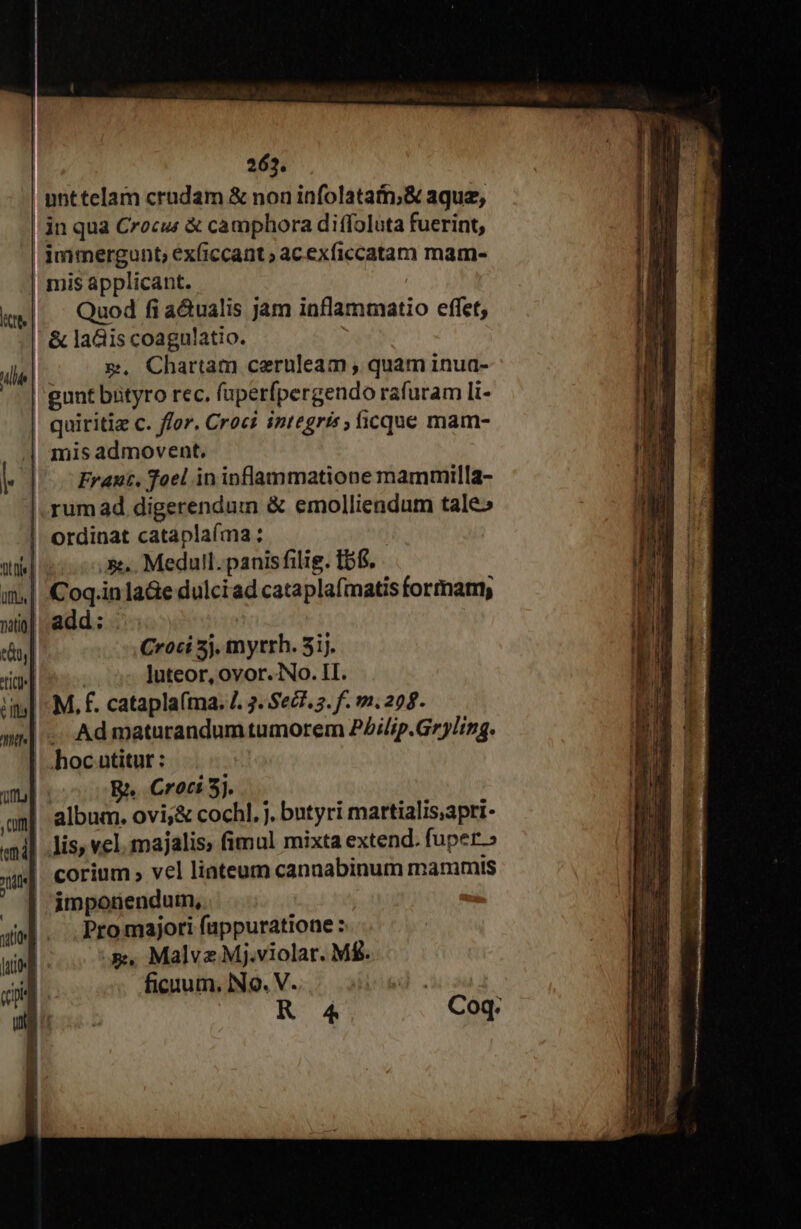 263.
unt telam crudam & non inſolatam,& aquæ,
in qua Crocus & camphora diſſoluta fuerint,
immergunt, exſiccant, ac exſiccatam mam-
mis applicant.
Quod ſi actualis jam inflammatio eſſet,
& lactis coagulatio.
℞. Chartam cæruleam, quam inun-
gunt butyro rec. ſuperſpergendo raſuram li-
quiritiæ c. flor. Croci integris, ſicque mam-
mis admovent.
Franc. Joel in inflammatione mammilla-
rum ad digerendum & emolliendum tale
ordinat cataplaſma:
℞. Medull. panis filig. ℔ß.
Coq. in lacte dulci ad cataplaſmatis formam,
add:
Croci ʒj. myrrh. ʒij.
luteor. ovor. No. II.
M. f. cataplaſma. l. 3. Sect. 3. f. m. 298.
Ad maturandum tumorem Philip. Gryling.
hoc utitur:
℞. Croci ʒj.
album. ovi,& cochl. j. butyri martialis, apri-
lis, vel majalis, ſimul mixta extend. ſuper
corium, vel linteum cannabinum mammis
imponendum,
Pro majori ſuppuratione:
℞. Malvæ Mj. violar. Mß.
ficuum. No. V.
R 4 Coq.